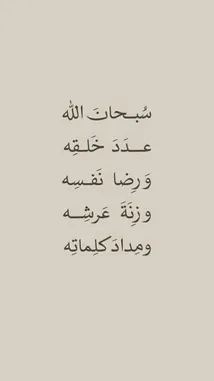 سُبـحانَ الله
عــدَدَ خَلـقِه
وَرِضا نَفـسِه
وزِنَةَ عَرشِــه
ومِدادَ كلِماتِه